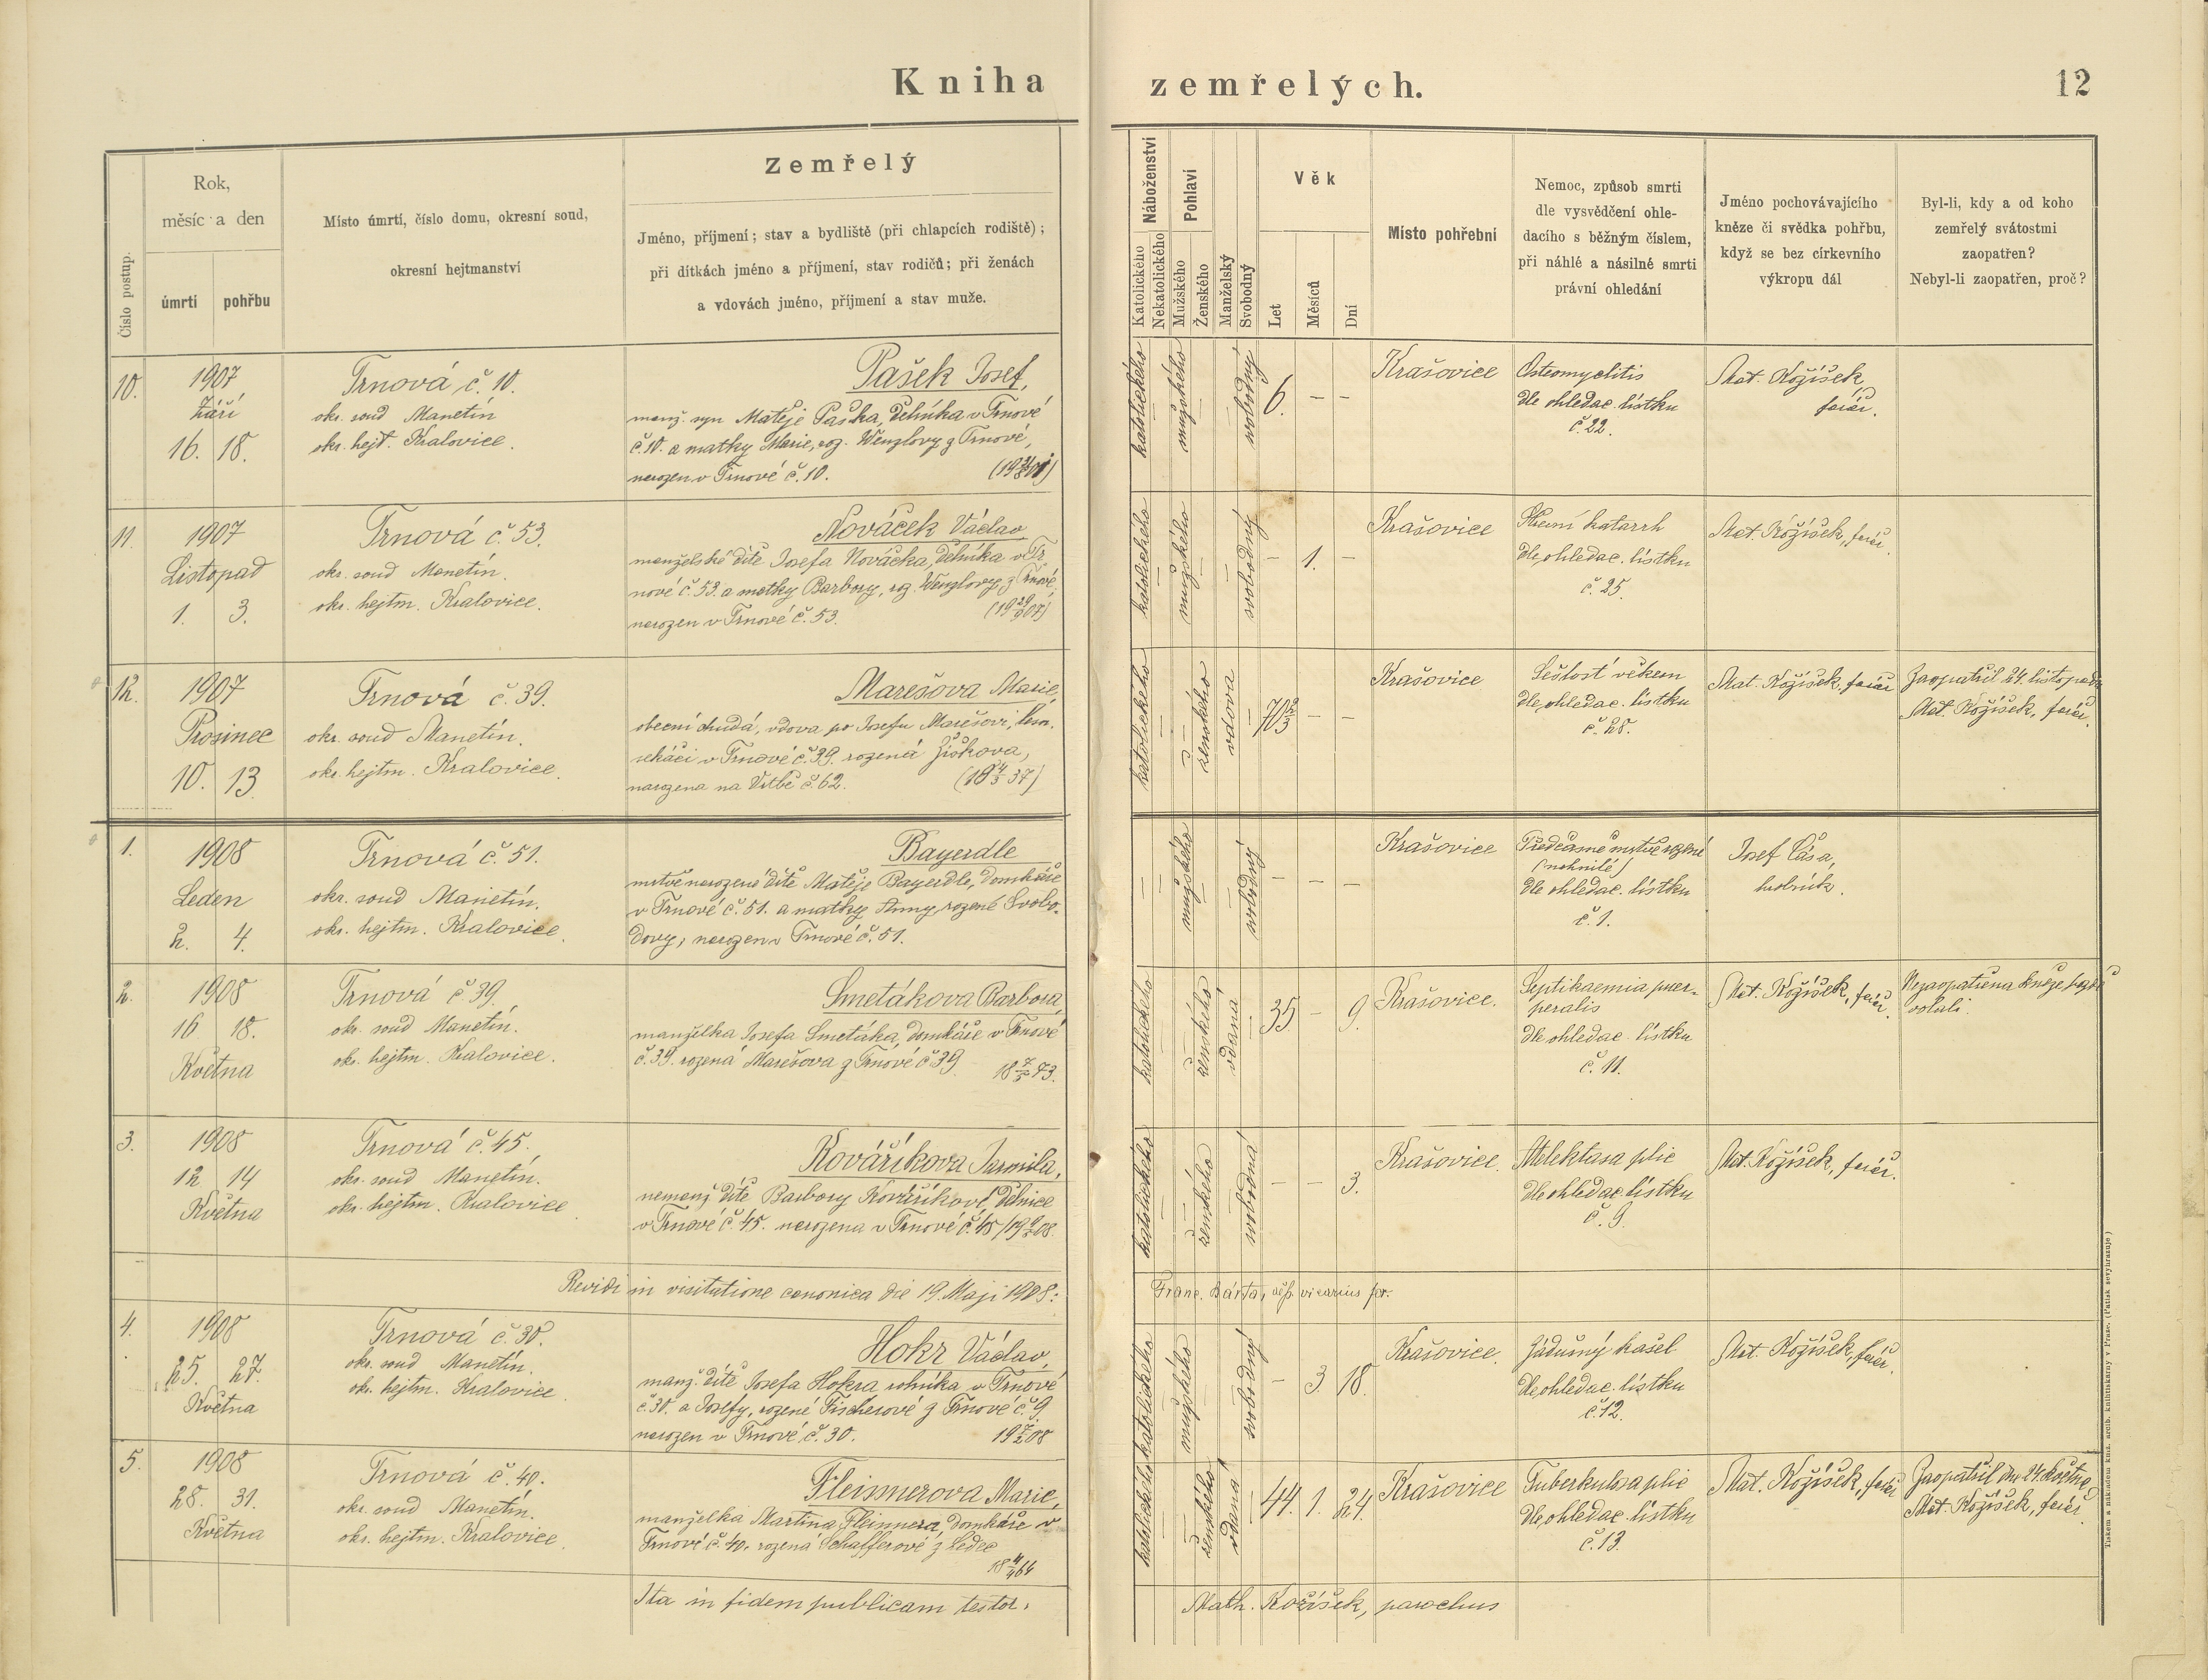 Kniha zemřelých.
12
Číslo postup.
Rok,
měsíc a den
úmrtí
pohřbu
Místo úmrtí, číslo domu, okresní soud,
okresní hejtmanství
Zemřelý
Jméno, příjmení; stav a bydliště (při chlapcích rodiště);
při dítkách jméno a příjmení, stav rodičů; při ženách
a vdovách jméno, příjmení a stav muže.
Náboženství
Katolického
Nekatolického
Pohlaví
Mužského
Ženského
Manželský
Svobodný
Věk
Let
Měsíců
Dní
Místo pohřební
Nemoc, způsob smrti
dle vysvědčení ohle-
dacího s běžným číslem,
při náhlé a násilné smrti
právní ohledání
Jméno pochovávajícího
kněze či svědka pohřbu,
když se bez církevního
výkropu dál
Byl-li, kdy a od koho
zemřelý svátostmi
zaopatřen?
Nebyl-li zaopatřen, proč?
10.
1907
Září
16. 18.
Trnová č. 10.
okr. soud Manetín
okr. hejt. Kralovice.
Pašek Josef,
manž. syn Matěje Paška, dělníka v Trnové
č. 10. a matky Marie, roz. Wenzlovy z Trnové,
narozen v Trnové č. 10.
katolického
mužského
svobodný
6. – –
Krašovice
Osteomyelitis
dle ohledac. lístku
č. 22.
Mat. Kožíšek,
farář.
11.
1907
Listopad
1. 3.
Trnová č. 53.
okr. soud Manetín.
okr. hejtm. Kralovice.
Nováček Václav
manželské dítě Josefa Nováčka, dělníka v Tr
nové č. 53. a matky Barbory, roz. Wenzlovy z Trnové,
narozen v Trnové č. 53.
(19 29/9 07)
katolického
mužského
svobodný
– 1. –
Krašovice
Střevní katarrh
dle ohledac. lístku
č. 25.
Mat. Kožíšek, farář.
12.
1907
Prosinec
10. 13
Trnová č. 39.
okr. soud Manetín.
okr. hejtm. Kralovice.
Marešova Marie,
obecní chudá, vdova po Josefu Marešovi,
sekáči v Trnové č. 39. rozená Žižkova,
narozena na Vrtbě č. 62.
katolického
ženského
vdova
– –
Krašovice
Sešlosť věkem
dle ohledac. lístku
č. 28.
Mat. Kožíšek, farář
Zaopatřil 24. listopadu
Mat. Kožíšek, farář.
1.
1908
Leden
2. 4.
Trnová č. 51.
okr. soud Manetín.
okr. hejtm. Kralovice.
Bayerdle
mrtvě narozené dítě Matěje Bayerdle, domkáře
v Trnové č. 51. a matky Anny, rozené Svobo-
dovy, narozen v Trnové č. 51.
mužského
svobodný
– – –
Krašovice
Předčasně mrtvě rozené
(nahnilé)
dle ohledac. lístku
č. 1.
Josef Čása,
hrobník.
2.
1908
16 18.
Května
Trnová č. 39.
okr. soud Manetín.
okr. hejtm. Kralovice.
Smetákova Barbora,
manželka Josefa Smetáka, domkáře v Trnové
č. 39. rozená Marešova z Trnové č. 39.
18 7/5 73.
katolického
ženského
vdaná
35 – 9.
Krašovice.
Septikaemia puer-
peralis
dle ohledac. lístku
č. 11.
Mat. Kožíšek, farář.
Nezaopatřena kněze
volali.
3.
1908
12 14
Května
Trnová č. 45.
okr. soud Manetín.
okr. hejtm. Kralovice
Kováříkova Jarmila,
nemanž. dítě Barbory Kováříkové dělnice
v Trnové č. 45. narozena v Trnové č. 45 /19 9/5 08.
katolického
ženského
svobodná
– – 3.
Krašovice.
Atelektasa plic
dle ohledac. lístku
č. 9.
Mat. Kožíšek, farář.
Revidi in visitatione canonica die 19. Maji 1908:
Franc. Bárta, vicarius for.
4.
1908
25. 27.
Května
Trnová č. 30.
okr. soud Manetín.
okr. hejtm. Kralovice.
Hokr Václav,
manž. dítě Josefa Hokra rolníka v Trnové
č. 30. a Josefy, rozené Fischerové z Trnové č. 9
narozen v Trnové č. 30.
19 7/2 08
katolického
mužského
svobodný
– 3. 18.
Krašovice.
Zádušný kašel
dle ohledac. lístku
č. 12.
Mat. Kožíšek, farář.
5.
1908
28. 31.
Května
Trnová č. 40.
okr. soud Manetín.
okr. hejtm. Kralovice.
Fleissnerova Marie,
manželka Martina Fleissnera, domkáře v
Trnové č. 40. rozená Schafferové z Ledec
18 4/4 64
katolického
ženského
vdaná
44. 1. 24.
Krašovice
Tuberkulosa plic
dle ohledac. lístku
č. 13.
Mat. Kožíšek, farář
Zaopatřil dne 24. května
Mat. Kožíšek, farář
Ita in fidem publicam testor.
Math. Kožíšek, parochus